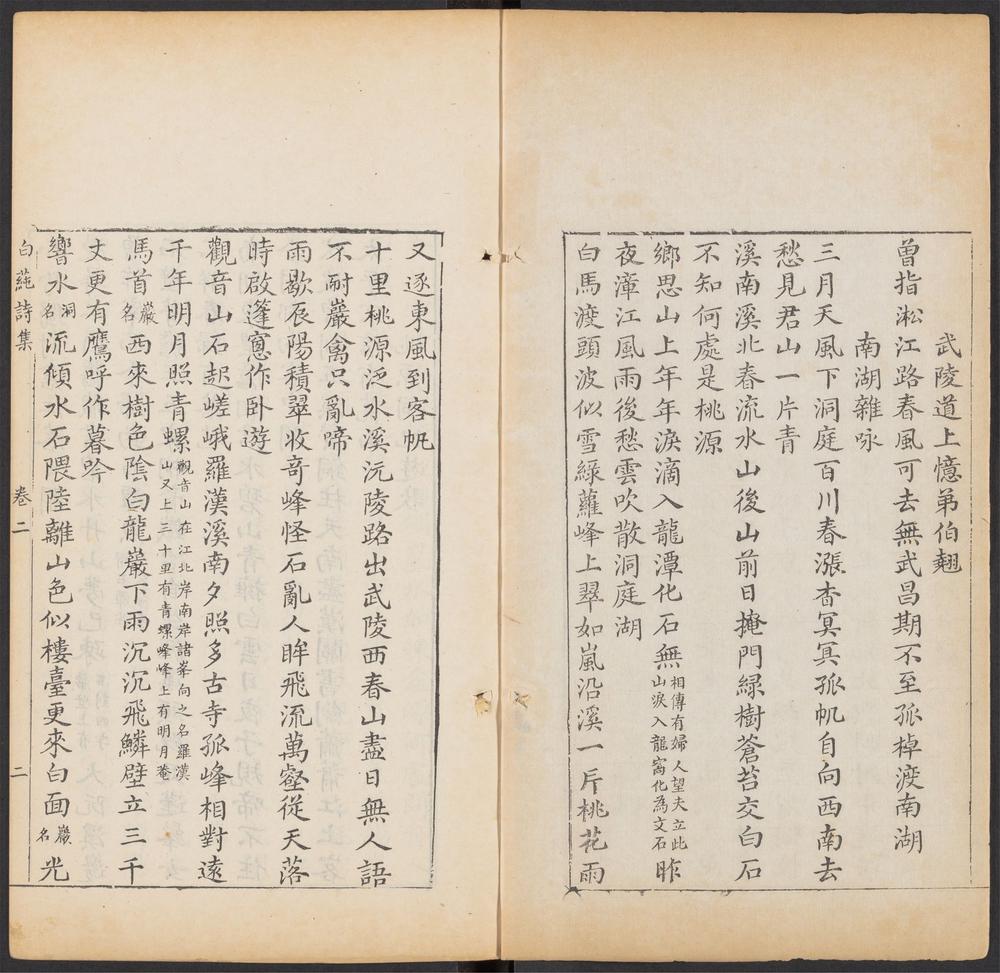 武陵道上憶弟伯翹
曾指淞江路春風可去無武昌期不至孤棹渡南湖
南湖雜咏
三月天風下洞庭百川春漲杳冥冥孤帆自向西南去
愁見君山一片青
溪南溪北春流水山後山前日掩門綠樹蒼苔交白石
不知何處是桃源
鄉思山上年年淚滴入龍潭化石無相傳有婦人望夫立此山淚入龍窩化為文石昨
夜漳江風雨後愁雲吹散洞庭湖
白馬渡頭波似雪綠蘿峰上翠如嵐沿溪一斤桃花雨
又逐東風到客帆
十里桃源泛水溪沅陵路出武陵西春山盡日無人語
不耐巖禽只亂啼
雨歇辰陽積翠收竒峰怪石亂人眸飛流萬壑從天落
時啟蓬窻作卧遊
觀音山石起嵯峨羅漢溪南夕照多古寺孤峰相對遠
千年明月照青螺觀音山在江北岸南岸諸峯向之名羅漢山又上三十里有青螺峰峰上有明月菴
馬首巖名西來樹色陰白龍巖下雨沉沉飛鱗壁立三千
丈更有鷹呼作暮吟
響水洞名流傾水石隈陸離山色似樓臺更來白面巖名光
白蒓詩集
卷二
二